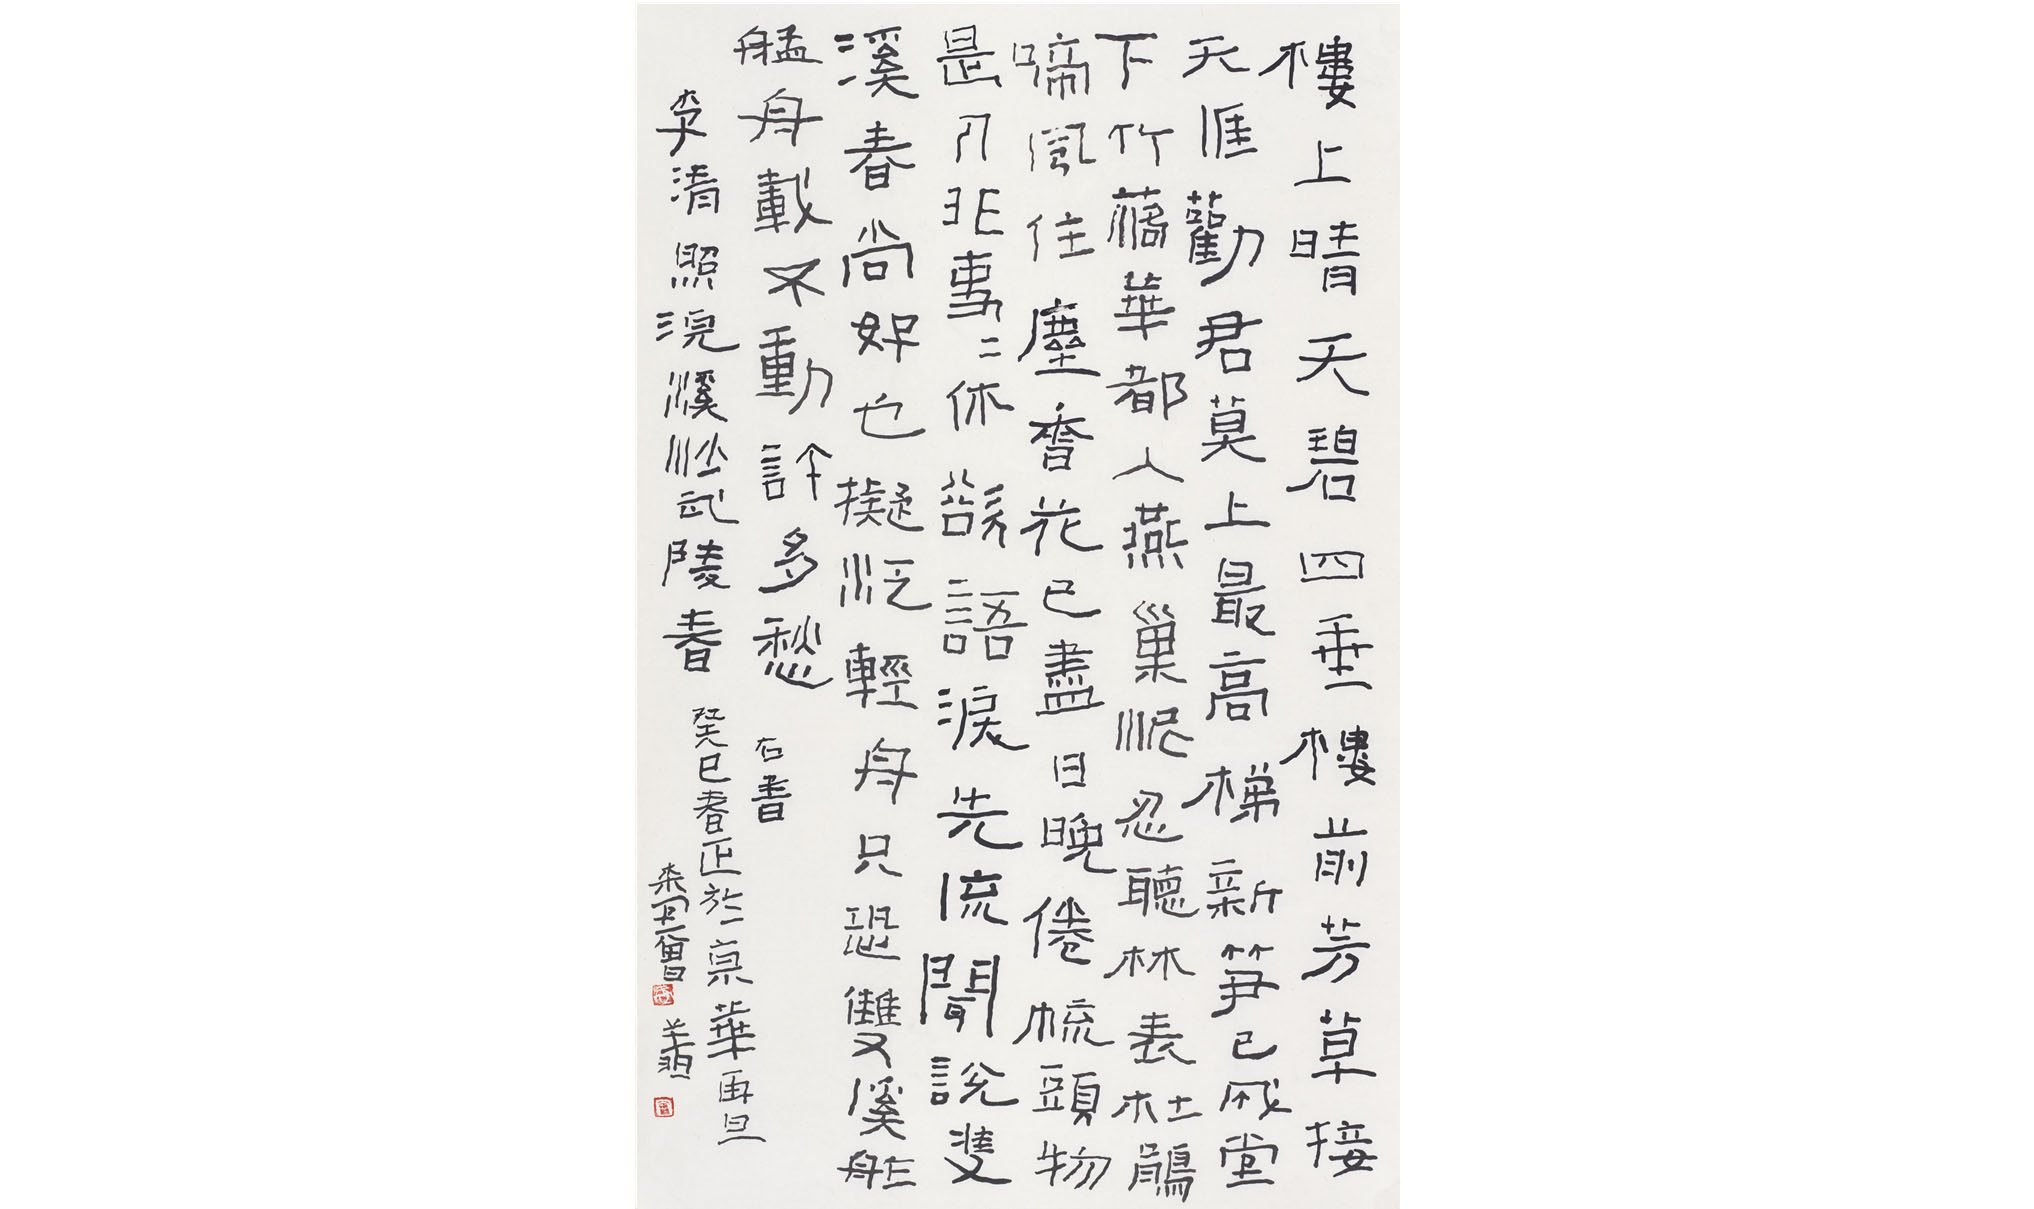 樓上晴天碧四垂樓前芳草接
天涯勸君莫上最高梯新筍已成堂
下竹落華都入燕巢泥忍聽林表杜鵑
啼風住塵香花已盡日晚倦梳頭物
是人非事〻休欲語淚先流聞說雙
溪春尚好也擬泛輕舟只恐雙溪舴
艋舟載不動許多愁 右書
李清照浣溪沙武陵春
癸巳春正於京華